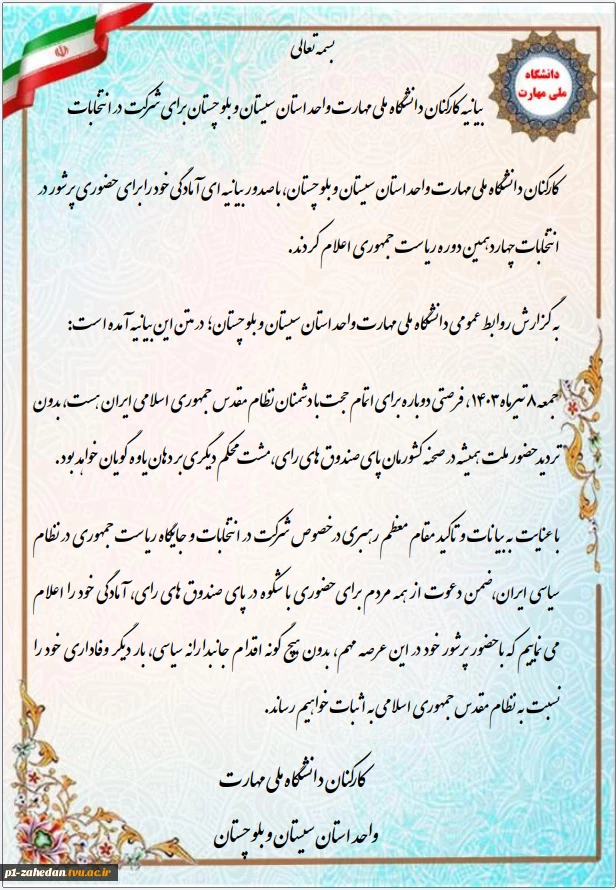 بسمه تعالی
دانشگاه
ملی مهارت
بیانیه کارکنان دانشگاه ملی مهارت واحد استان سیستان و بلوچستان برای شرکت در انتخابات
کارکنان دانشگاه ملی مهارت واحد استان سیستان و بلوچستان، با صدور بیانیه ای آمادگی خود را برای حضوری پرشور در
انتخابات چهاردهمین دوره ریاست جمهوری اعلام کردند.
به گزارش روابط عمومی دانشگاه ملی مهارت واحد استان سیستان و بلوچستان؛ در متن این بیانیه آمده است:
جمعه ۸ تیرماه ۱۴۰۳، فرصتی دوباره برای اتمام حجت با دشمنان نظام مقدس جمهوری اسلامی ایران هست، بدون
تردید حضور ملت همیشه در صحنه کشورمان پای صندوق های رای، مشت محکم دیگری بر دهان یاوه گویان خواهد بود.
با عنایت به بیانات و تاکید مقام معظم رهبری در خصوص شرکت در انتخابات و جایگاه ریاست جمهوری در نظام
سیاسی ایران، ضمن دعوت از همه مردم برای حضوری با شکوه در پای صندوق های رای، آمادگی خود را اعلام
می نماییم که با حضور پرشور خود در این عرصه مهم، بدون هیچ گونه اقدام جانبدارانه سیاسی، بار دیگر وفاداری خود را
نسبت به نظام مقدس جمهوری اسلامی به اثبات خواهیم رساند.
کارکنان دانشگاه ملی مهارت
واحد استان سیستان و بلوچستان
p1-zahedan.tvu.ac.ir